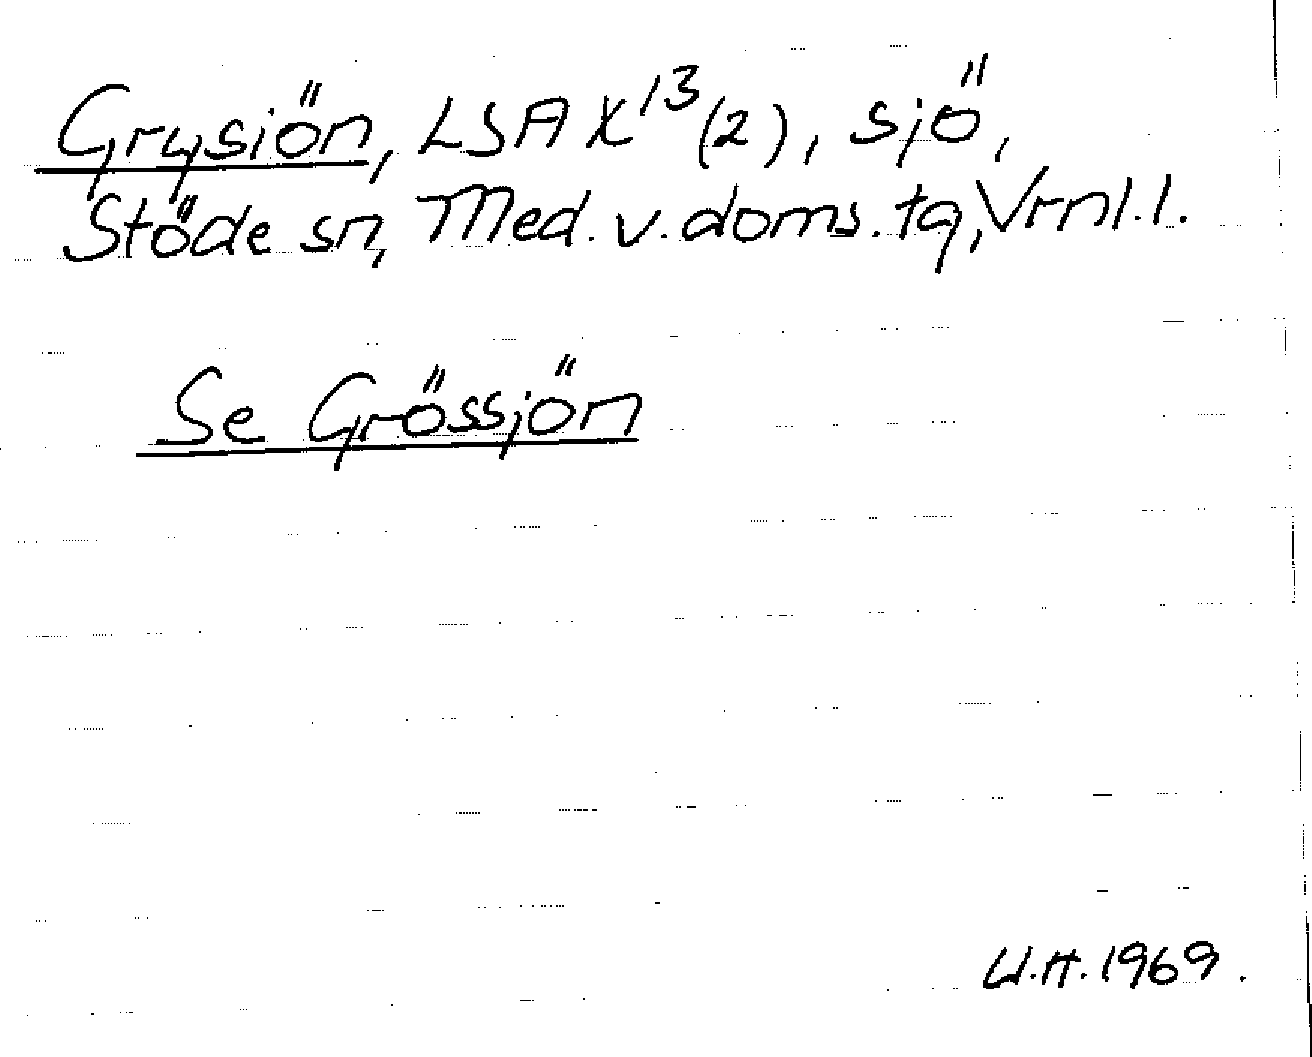 Grysiön, LSA X¹³(2), sjö,
Stöde sn, Med. v. doms. tg, Vrnl. l.
Se Grössjön
U.H. 1969.